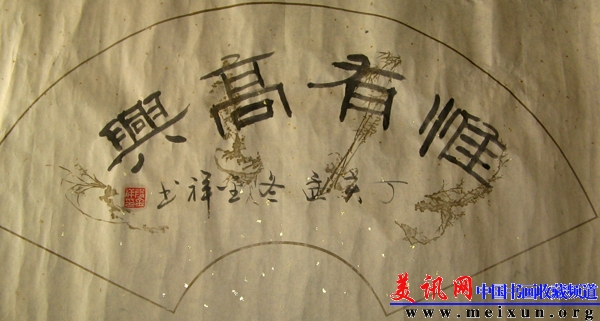 惟有高興
丁亥孟冬聖祥书
美讯网 中国书画收藏频道
www.meixun.org